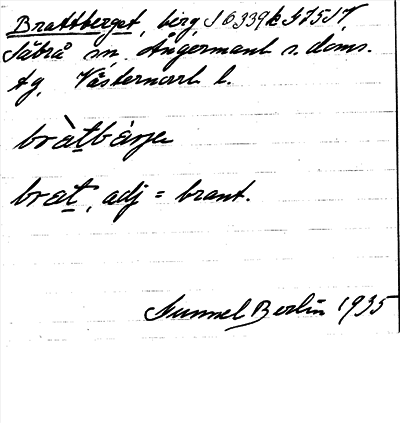 Brattberget, berg, S 6339 k
Säbrå sn, Ångermanl s. doms.
tg, Västernorrl l.
bràtbárje
brat, adj = brant.
Nunnel Berlin 1935